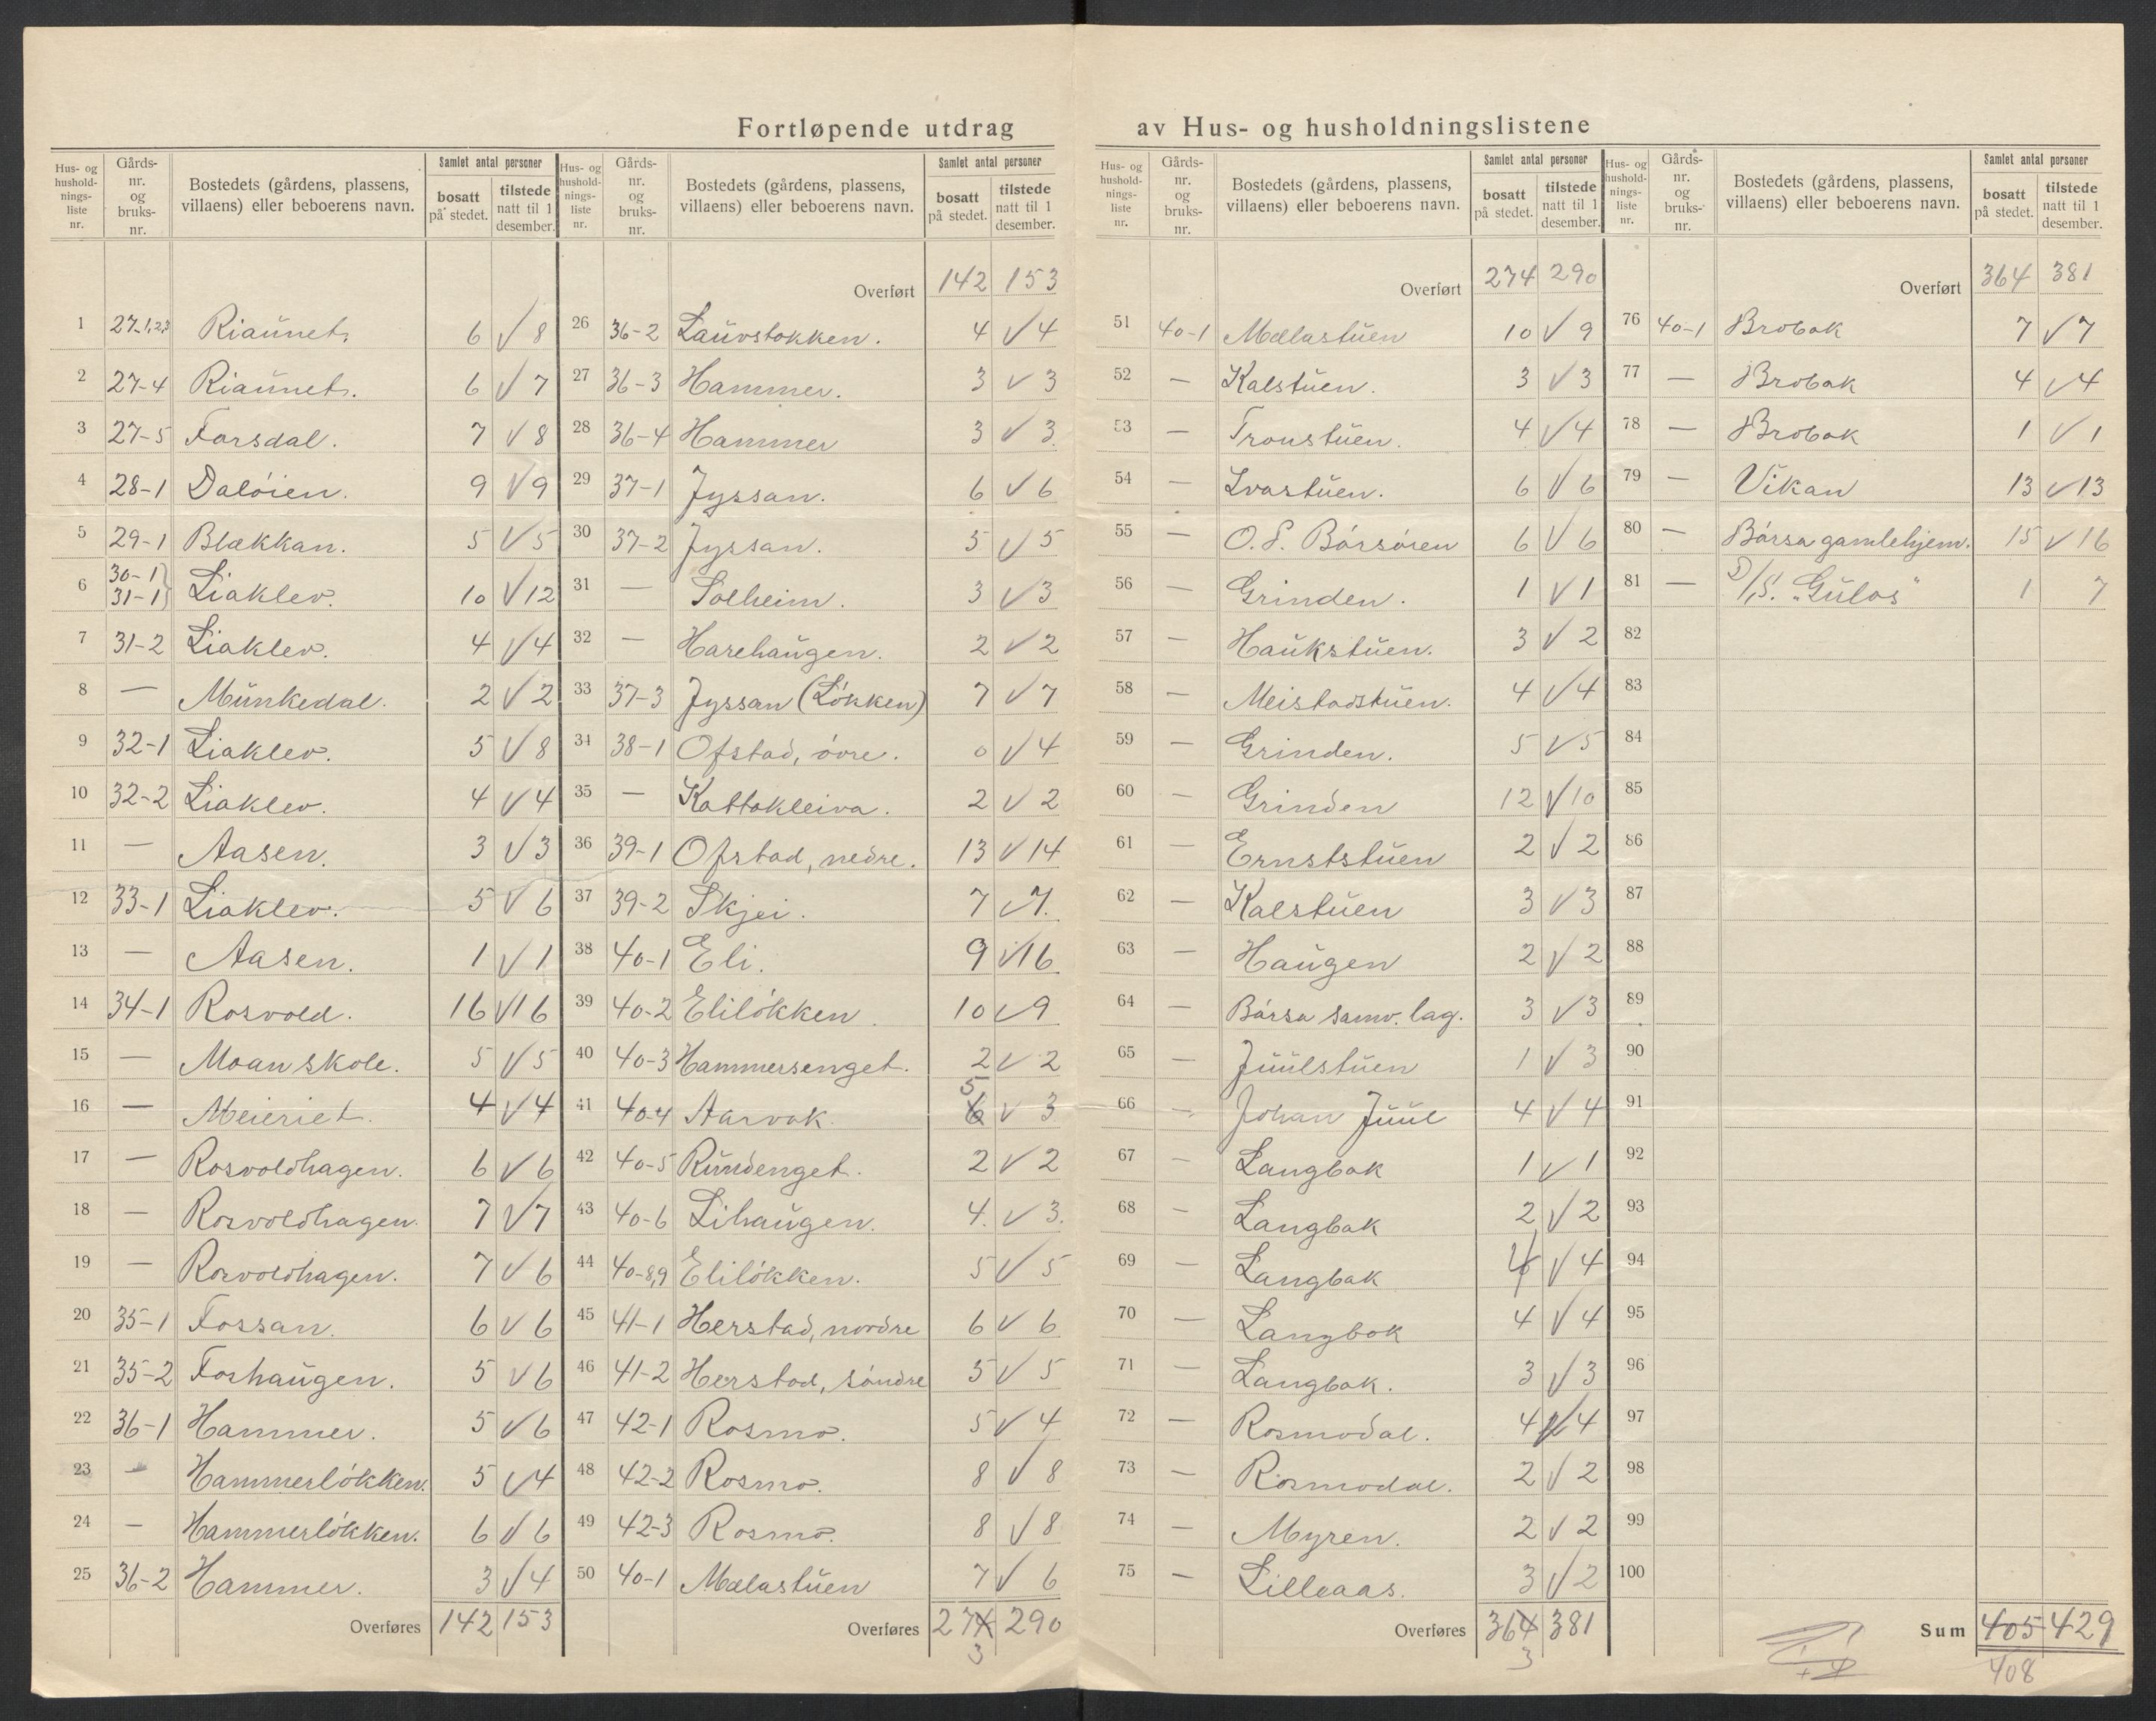 Fortløpende utdrag av Hus- og husholdningslistene
Hus- og husholdnings-liste nr. | Gårds-nr. og bruks-nr. | Bostedets (gårdens, plassens, villaens) eller beboerens navn. | Samlet antal personer | bosatt på stedet. | tilstede natt til 1 desember.
1 27-1,2,3 Riaunet. 6 √ 8
2 27-4 Riaunet. 6 √ 7
3 27-5 Forsdal. 7 √ 8
4 28-1 Daløien. 9 √ 9
5 29-1 Blakkan. 5 √ 5
6 30-1 31-1} Liaklev. 10 √ 12
7 31-2 Liaklev. 4 √ 4
8 — Munkedal. 2 √ 2
9 32-1 Liaklev. 5 √ 8
10 32-2 Liaklev. 4 √ 4
11 — Aasen. 3 √ 3
12 33-1 Liaklev. 5 √ 6
13 — Aasen. 1 √ 1
14 34-1 Rosvold. 16 √ 16
15 — Moan skole. 5 √ 5
16 — Meieriet. 4 √ 4
17 — Rosvoldhagen. 6 √ 6
18 — Rosvoldhagen. 7 √ 7
19 — Rosvoldhagen. 7 √ 6
20 35-1 Fossan. 6 √ 6
21 35-2 Foshaugen. 5 √ 6
22 36-1 Hammer. 5 √ 6
23 — Hammerløkken. 5 √ 4
24 — Hammerløkken. 6 √ 6
25 36-2 Hammer. 3 √ 4
Overføres 142 153
Hus- og husholdnings-liste nr. | Gårds-nr. og bruks-nr. | Bostedets (gårdens, plassens, villaens) eller beboerens navn. | Samlet antal personer | bosatt på stedet. | tilstede natt til 1 desember.
Overført 142 153
26 36-2 Lauvstokken. 4 √ 4
27 36-3 Hammer. 3 √ 3
28 36-4 Hammer 3 √ 3.
29 37-1 Jyssan. 6 √ 6
30 37-2 Jyssan. 5 √ 5
31 — Solheim. 3 √ 3
32 — Harehaugen. 2 √ 2
33 37-3 Jyssan (Løkken) 7 √ 7
34 38-1 Ofstad, øvre. 0 √ 4
35 — Kattakleiva. 2 √ 2
36 39-1 Ofstad, nedre. 13 √ 14
37 39-2 Skjei. 7 √ 7.
38 40-1 Eli. 9 √ 16
39 40-2 Eliløkken. 10 √ 9
40 40-3 Hammersenget. 2 √ 2
41 40-4 Aarvak 6 5 √ 3
42 40-5 Rundenget. 2 √ 2
43 40-6 Lihaugen. 4. √ 3.
44 40-8,9 Eliløkken. 5 √ 5
45 41-1 Herstad, nordre 6 √ 6
46 41-2 Herstad, søndre 5 √ 5
47 42-1 Rosmo. 5 √ 4
48 42-2 Rosmo. 8 √ 8
49 42-3 Rosmo. 8 √ 8
50 40-1 Mælastuen 7 √ 6
Overføres 274 290
3
Hus- og husholdnings-liste nr. | Gårds-nr. og bruks-nr. | Bostedets (gårdens, plassens, villaens) eller beboerens navn. | Samlet antal personer | bosatt på stedet. | tilstede natt til 1 desember.
Overført 274 290
51 40-1 Mælastuen 10 √ 9
52 — Kalstuen. 3 √ 3
53 — Tronstuen. 4 √ 4
54 — Ivarstuen. 6 √ 6
55 — O. P. Børsøien 6 √ 6
56 — Grinden. 1 √ 1
57 — Haukstuen. 3 √ 2
58 — Meistadstuen. 4 √ 4
59 — Grinden. 5 √ 5
60 — Grinden 12 √ 10
61 — Ernststuen 2 √ 2
62 — Kalstuen 3 √ 3
63 — Haugen 2 √ 2
64 — Børsa samv. lag. 3 √ 3
65 — Juulstuen 1 √ 3
66 — Johan Juul 4 √ 4
67 — Langbak 1 √ 1
68 — Langbak 2 √ 2
69 — Langbak 4 √ 4
70 — Langbak 4 √ 4
71 — Langbak. 3 √ 3
72 — Rosmodal. 4 √ 4
73 — Rosmodal. 2 √ 2
74 — Myren. 2 √ 2
75 — Lilleaas. 3 √ 2
Overføres 364 381
3
Hus- og husholdnings-liste nr. | Gårds-nr. og bruks-nr. | Bostedets (gårdens, plassens, villaens) eller beboerens navn. | Samlet antal personer | bosatt på stedet. | tilstede natt til 1 desember.
Overført 364 381
76 40-1 Brobak 7 √ 7
77 — Brobak 4 √ 4
78 — Brobak 1 √ 1
79 — Vikan 13 √ 13
80 — Børsa gamlehjem. 15 √ 16
81 — D/S. "Gulos" 1 7
82
83
84
85
86
87
88
89
90
91
92
93
94
95
96
97
98
99
100
Sum 405 429
408